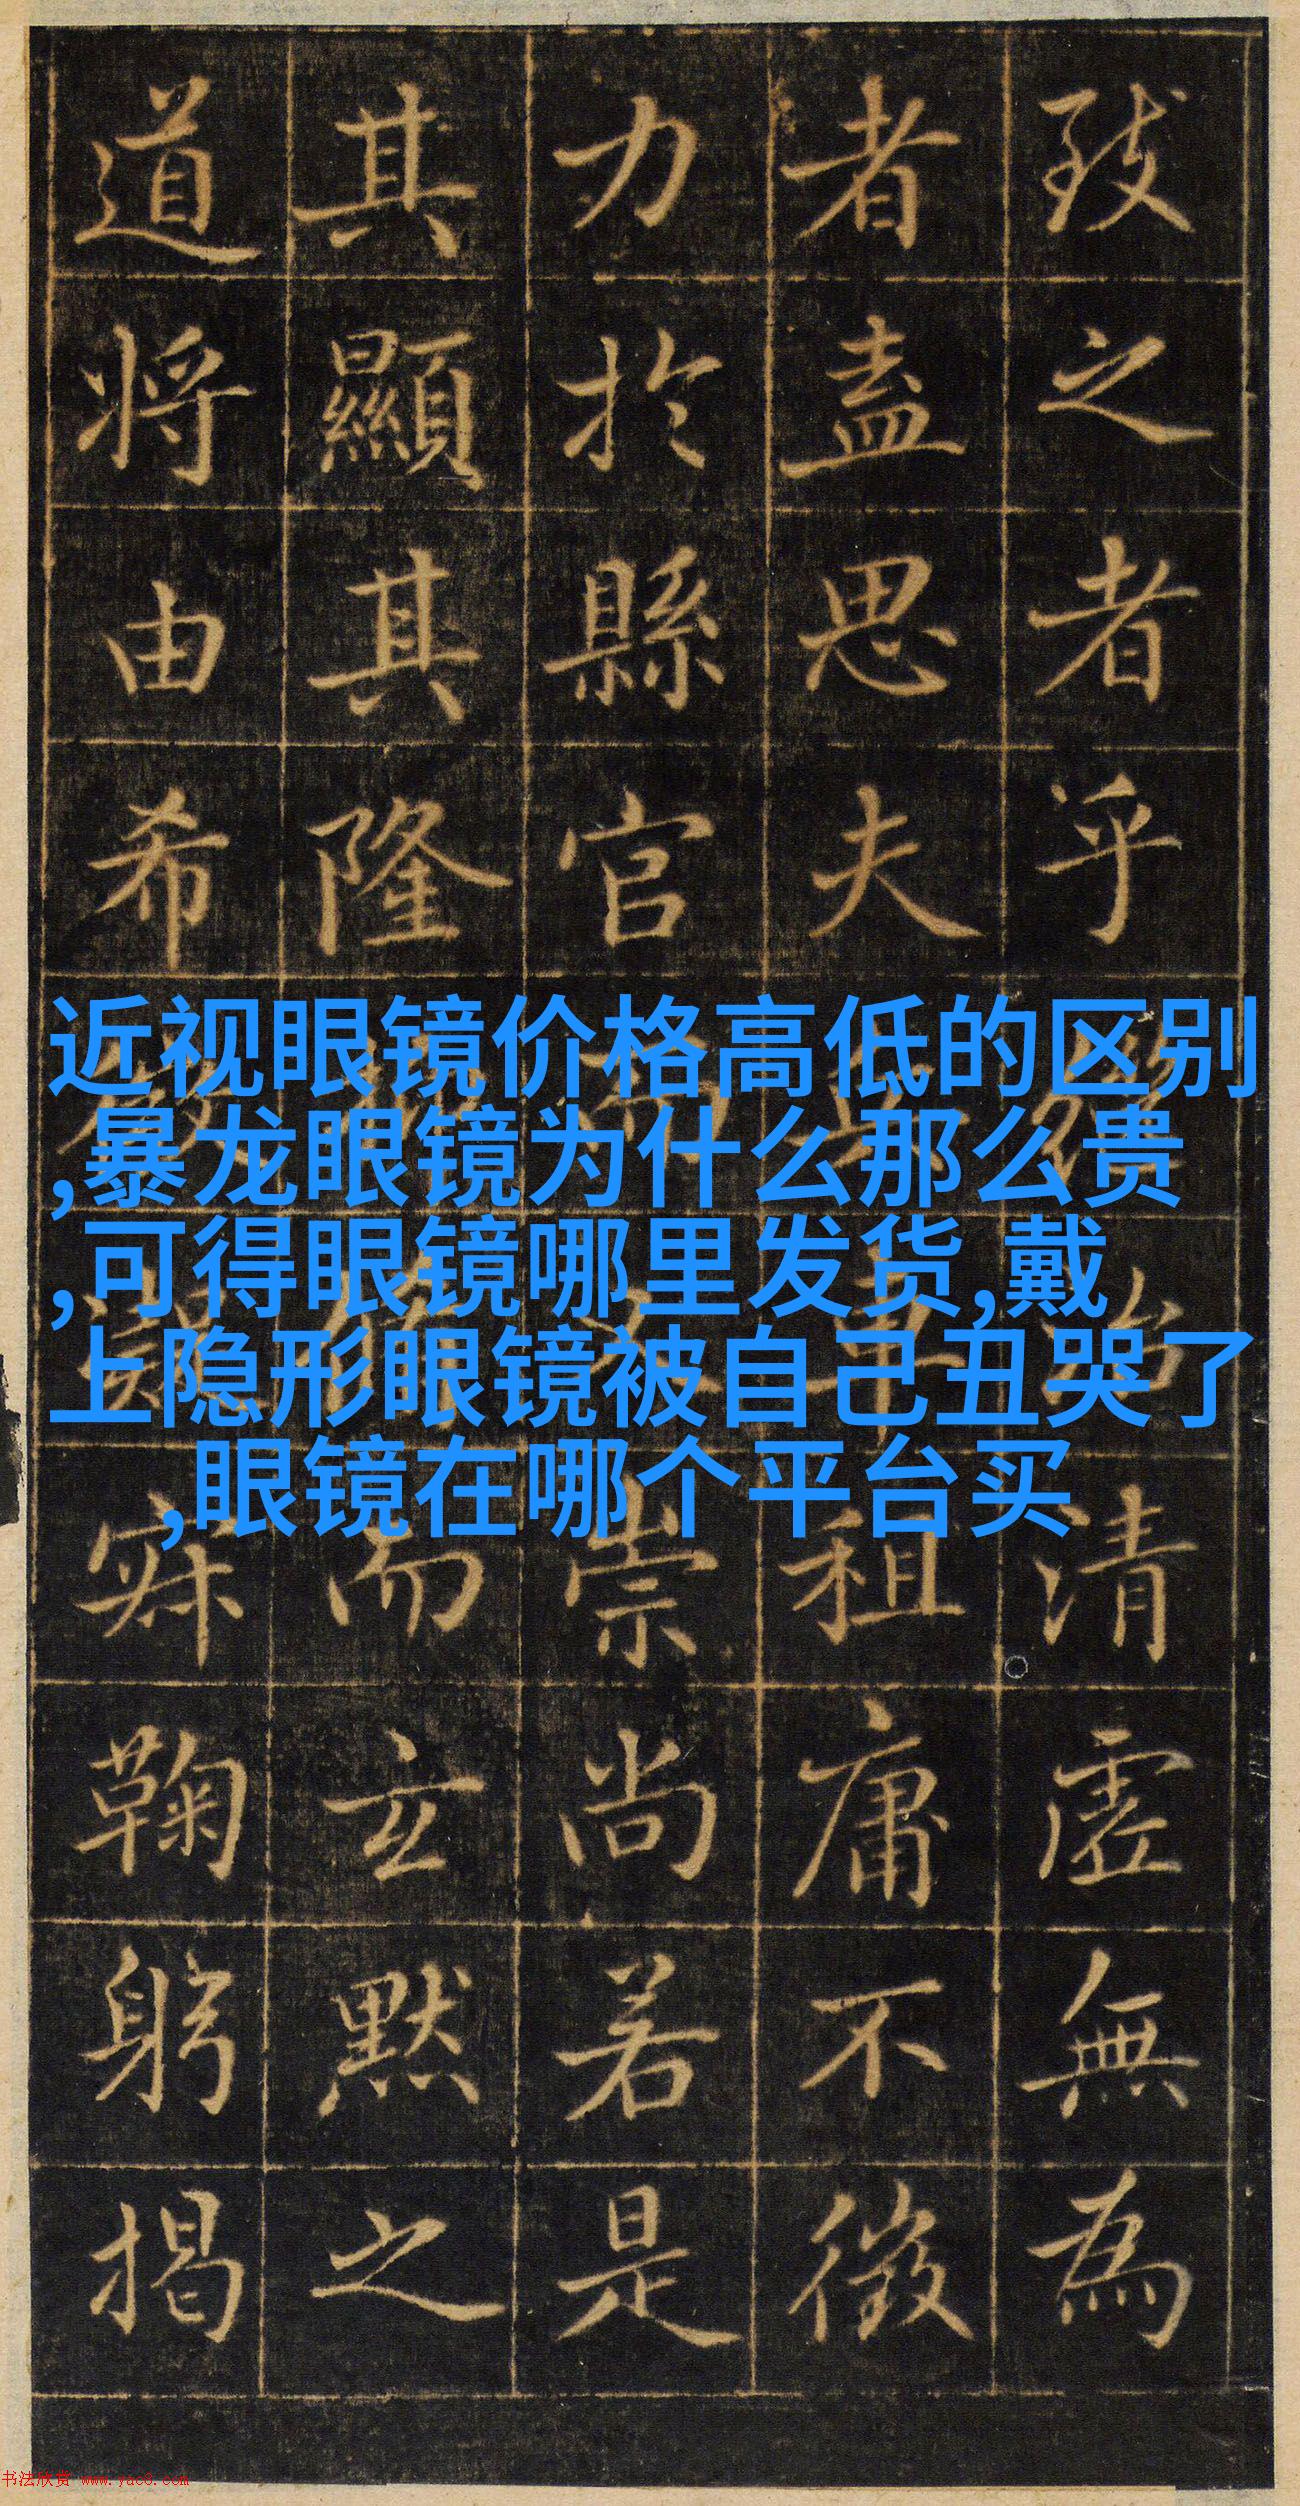 致之者乎清虛無為
者盍思夫租庸不徵
力於縣官崇尚若是
其顯其隆而玄默之
道將由希寐鞠躬揭
近视眼镜价格高低的区别
,暴龙眼镜为什么那么贵
,可得眼镜哪里发货,戴
上隐形眼镜被自己丑哭了
,眼镜在哪个平台买
书法欣赏 www.yac8.com